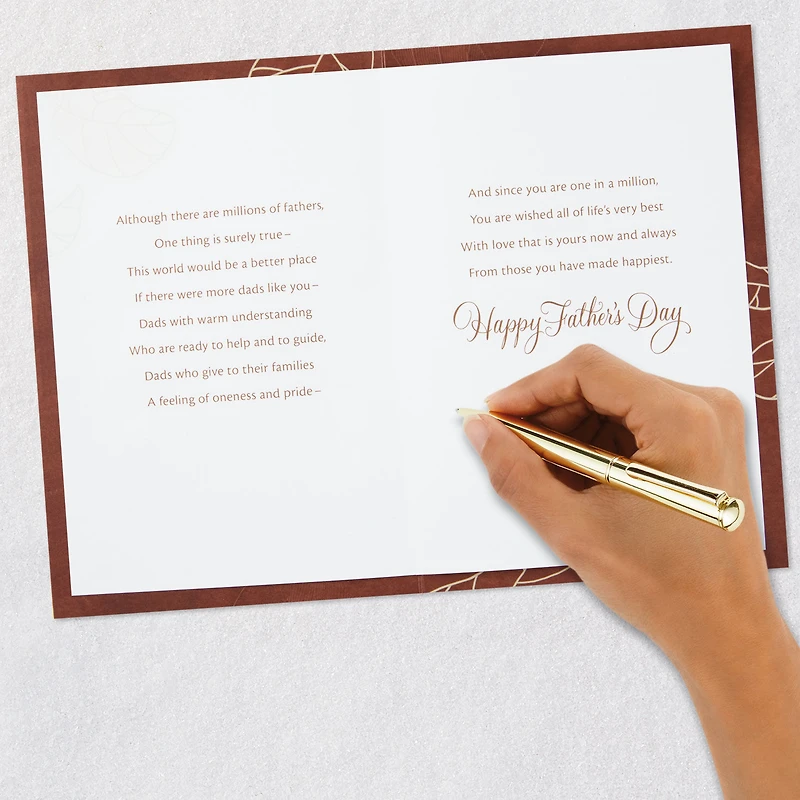 Although there are millions of fathers,
One thing is surely true–
This world would be a better place
If there were more dads like you–
Dads with warm understanding
Who are ready to help and to guide,
Dads who give to their families
A feeling of oneness and pride–
And since you are one in a million,
You are wished all of life's very best
With love that is yours now and always
From those you have made happiest.
Happy Father's Day